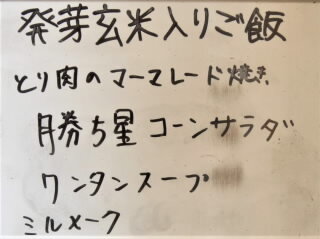 発芽玄米入りご飯
とり肉のマーマレード焼き
勝ち星コーンサラダ
ワンタンスープ
ミルメーク